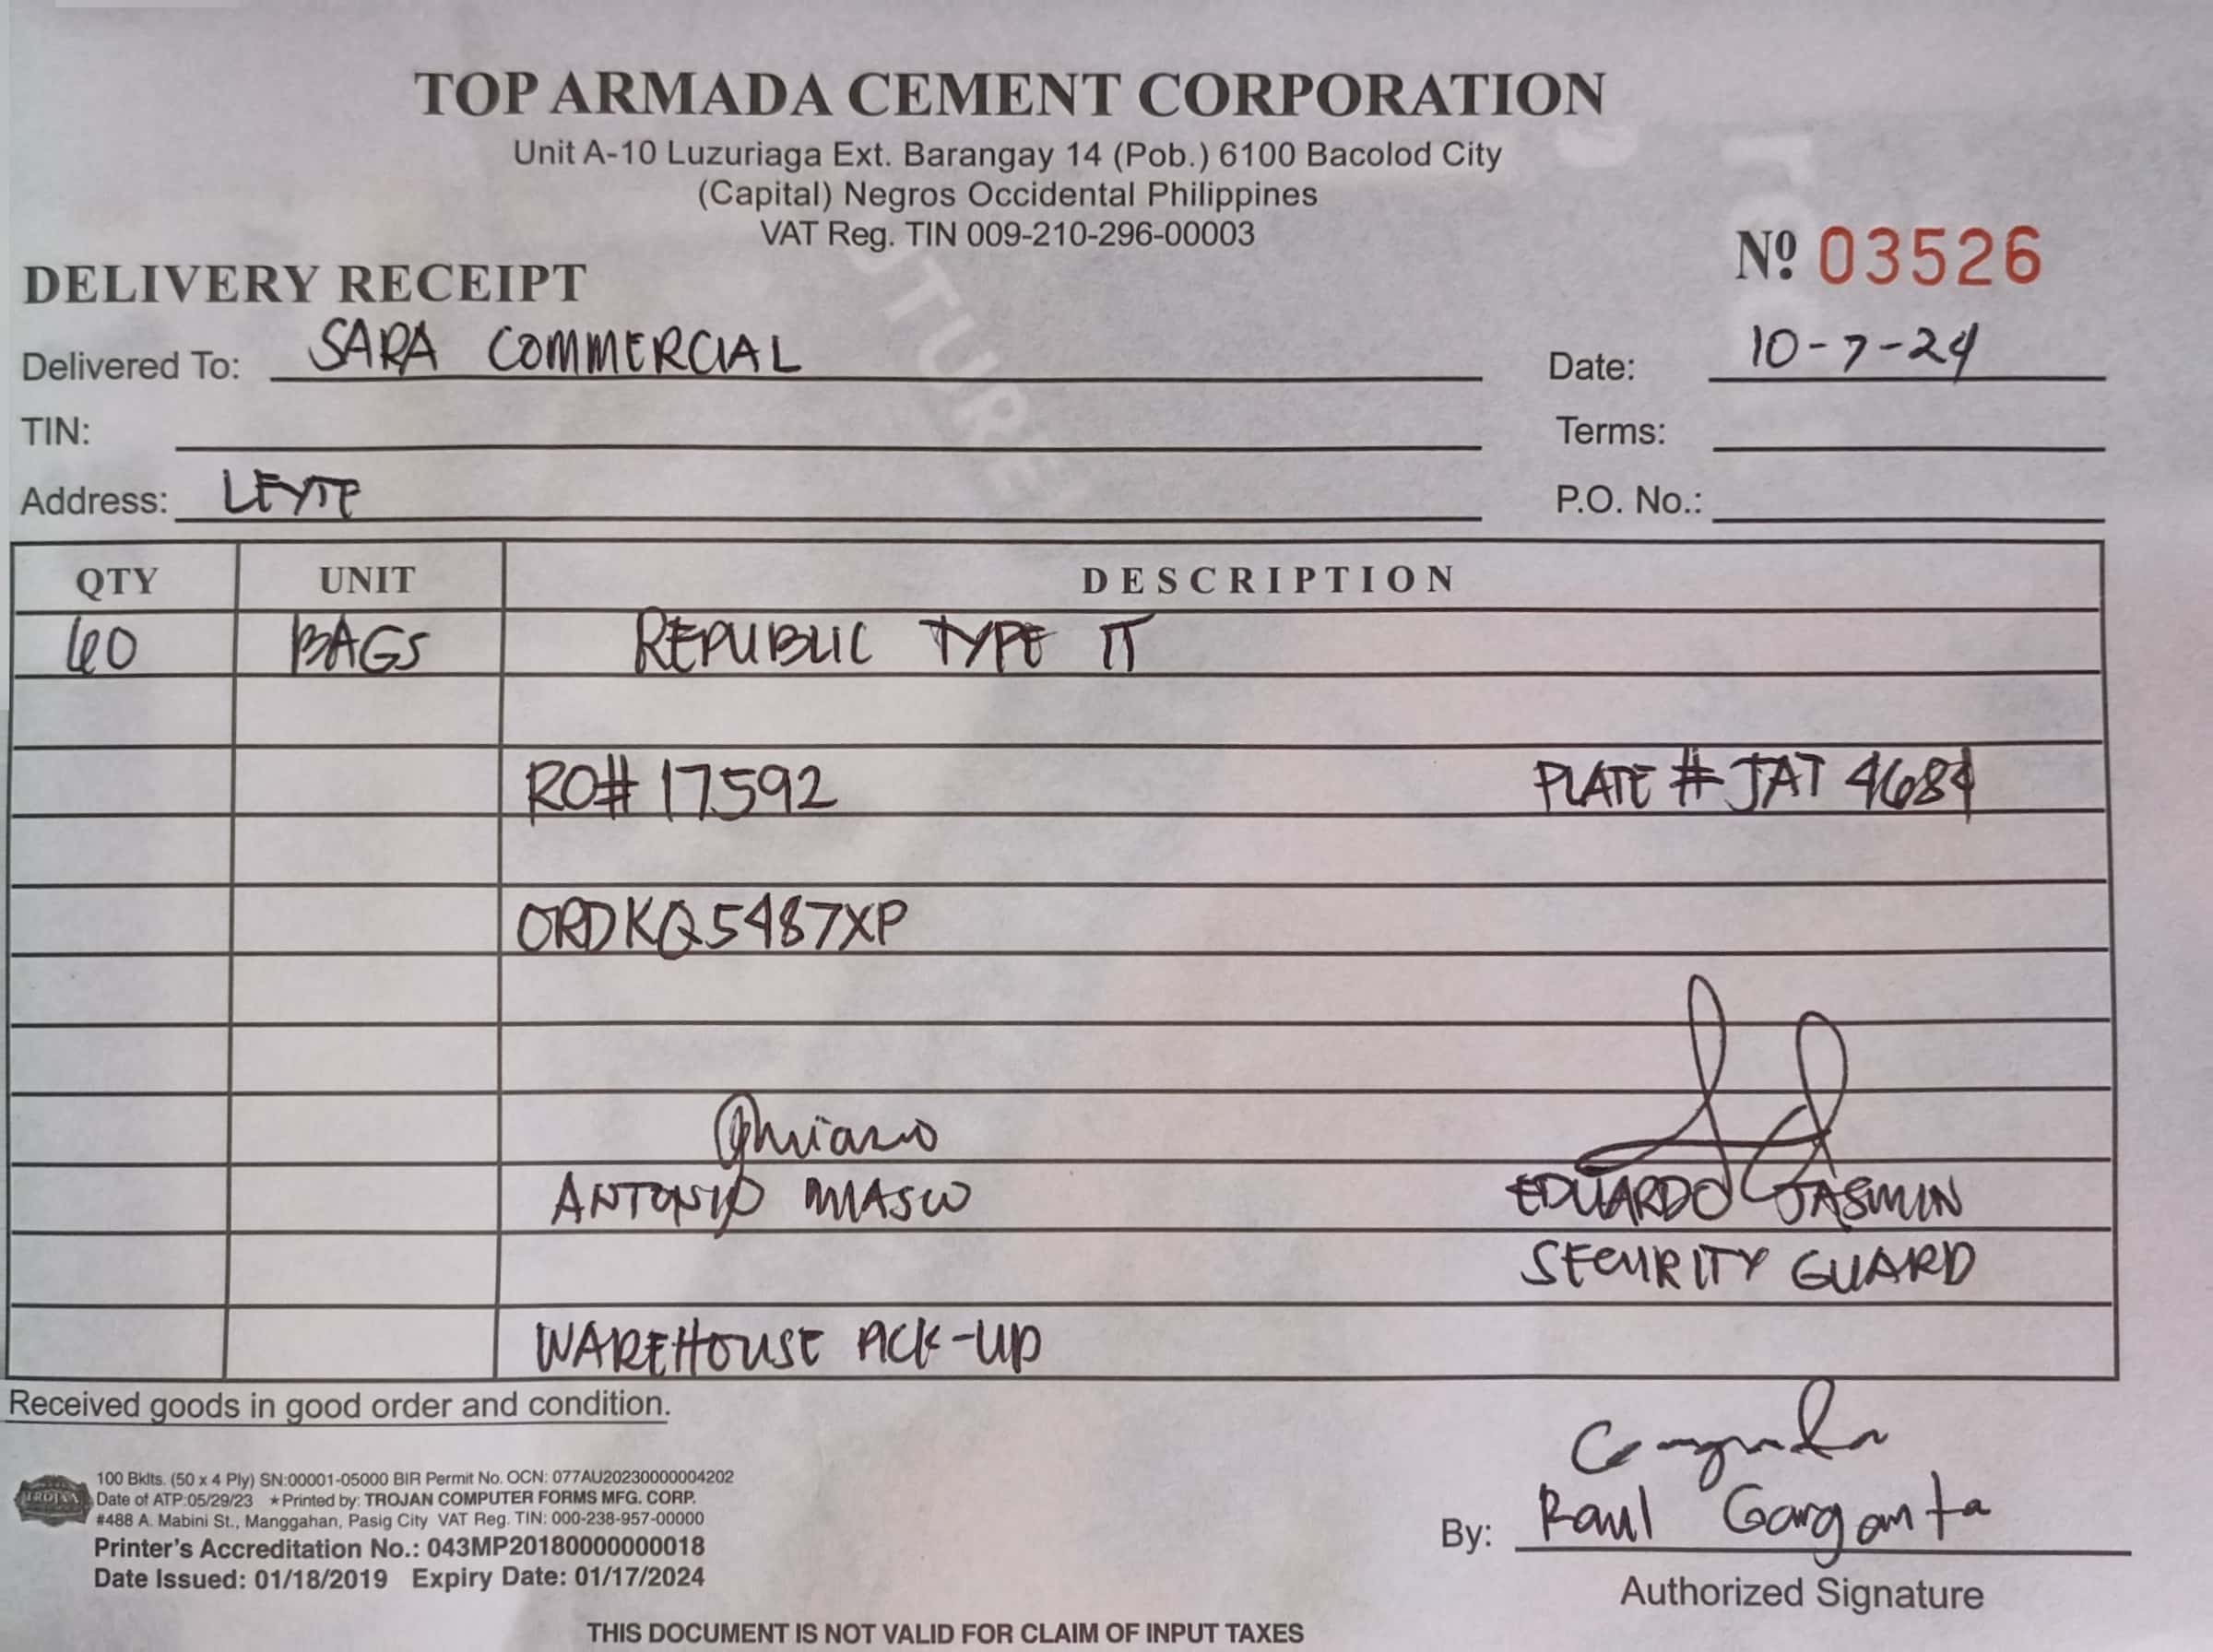 TOP ARMADA CEMENT CORPORATION
Unit A-10 Luzuriaga Ext. Barangay 14 (Pob.) 6100 Bacolod City
(Capital) Negros Occidental Philippines
VAT Reg. TIN 009-210-296-00003
Nº 03526
DELIVERY RECEIPT
Delivered To: SARA COMMERCIAL Date: 10-7-24
TIN: Terms:
Address: LEYTE P.O. No.:
QTY UNIT DESCRIPTION
60 BAGS REPUBLIC TYPE IT
RO# 17592 PLATE # JAT 4684
ORDKQ5487XP
ANTONIO EDUARDO JASMIN
SECURITY GUARD
WAREHOUSE PICK-UP
Received goods in good order and condition.
TROJAN
100 Bklts. (50 x 4 Ply) SN:00001-05000 BIR Permit No. OCN: 077AU20230000004202
Date of ATP:05/29/23 ★Printed by: TROJAN COMPUTER FORMS MFG. CORP.
#488 A. Mabini St., Manggahan, Pasig City VAT Reg. TIN: 000-238-957-00000
Printer's Accreditation No.: 043MP20180000000018
Date Issued: 01/18/2019 Expiry Date: 01/17/2024
By: Raul Garganta
Authorized Signature
THIS DOCUMENT IS NOT VALID FOR CLAIM OF INPUT TAXES